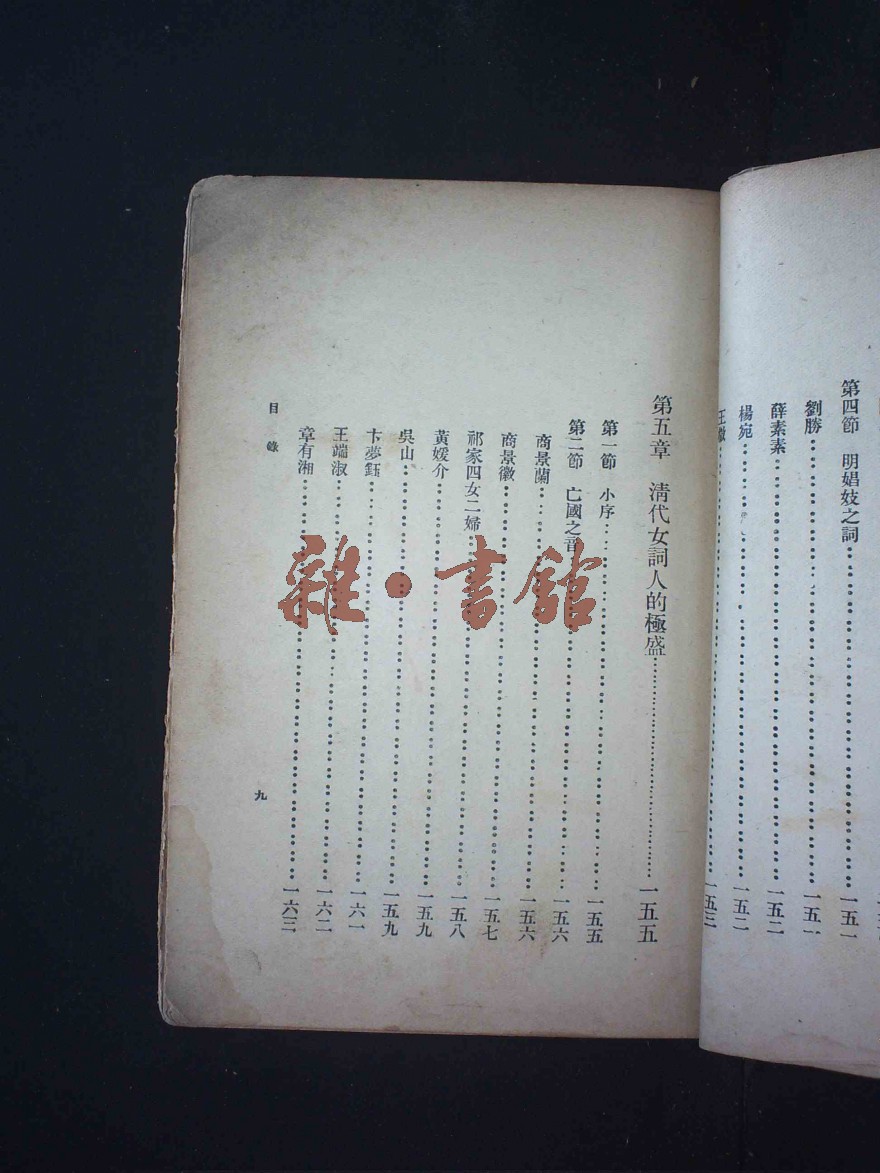 第四節　明娼妓之詞……一五一
劉勝……一五一
薛素素……一五二
楊宛……一五二
王微……一五三
第五章　清代女詞人的極盛……一五五
第一節　小序……一五五
第二節　亡國之音……一五六
商景蘭……一五六
商景徽……一五七
祁家四女二婦……一五八
黃媛介……一五九
吳山……一五九
卞夢鈺……一六一
王端淑……一六二
章有湘……一六三
目錄
九
雜·書館